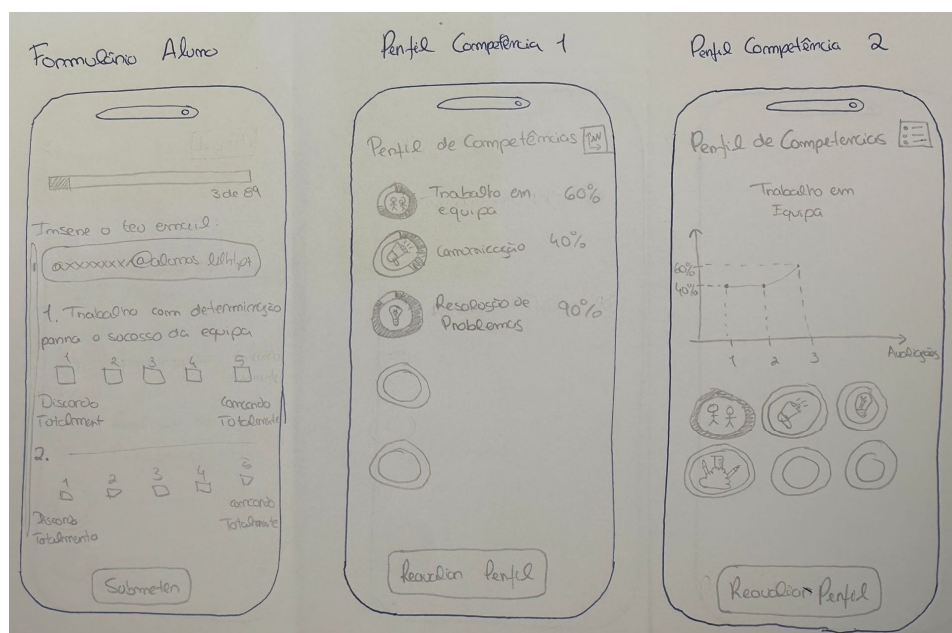 Formulário Aluno
3 de 89
Insere o teu email:
axxxxxxx@alunos.
1. Trabalho com determinação
para o sucesso da equipa
1 2 3 4 5
Discordo
Totalment
Concordo
Totalmente
2.
1 2 3 4 5
Discordo
Totalmente
concordo
Totalmente
Submeter
Perfil Competência 1
Perfil de Competências
Trabalho em
equipa
60%
Comunicação 40%
Resolução de
Problemas
90%
Reavaliar Perfil
Perfil Competência 2
Perfil de Competencias
Trabalho em
Equipa
60%
40%
1 2 3
Avaliações
Reavaliar Perfil